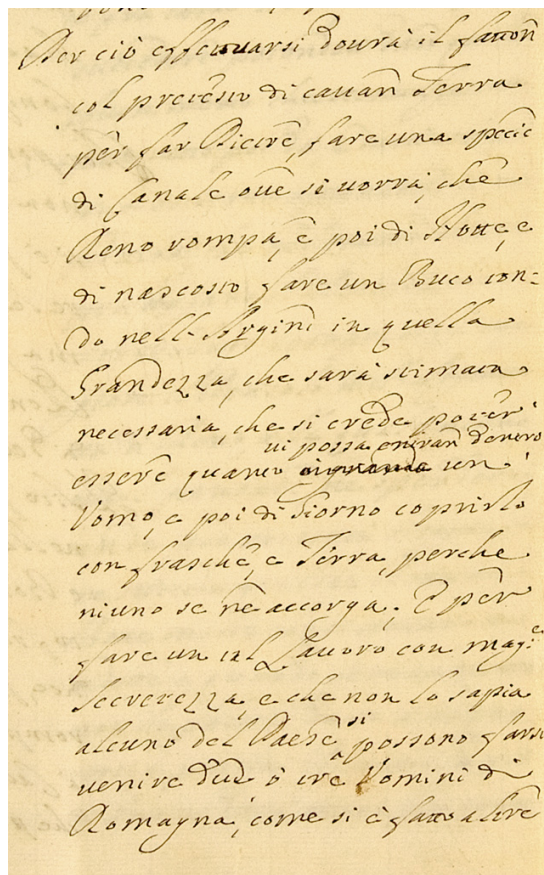 Per ciò effettuarsi dourà il fattore
col pretesto di cauar Terra
per far Pietre, fare una specie
di Canale oue si uorrà, che
Reno rompa, e poi di Notte, e
di nascosto fare un Buco ton=
do nell'Argine in quella
Grandezza, che sarà stimata
necessaria, che si crede poter
ui possa entrar dentro
essere quanto un
Uomo, e poi di Giorno coprirlo
con frasche, e Terra, perche
niuno se ne accorga. E per
fare un tal Lauoro con mag.e
Secretezza, e che non lo sapia
alcuno del Paese si possono farsi
uenire due ò tre Uomini di
Romagna, come si è fatto altre